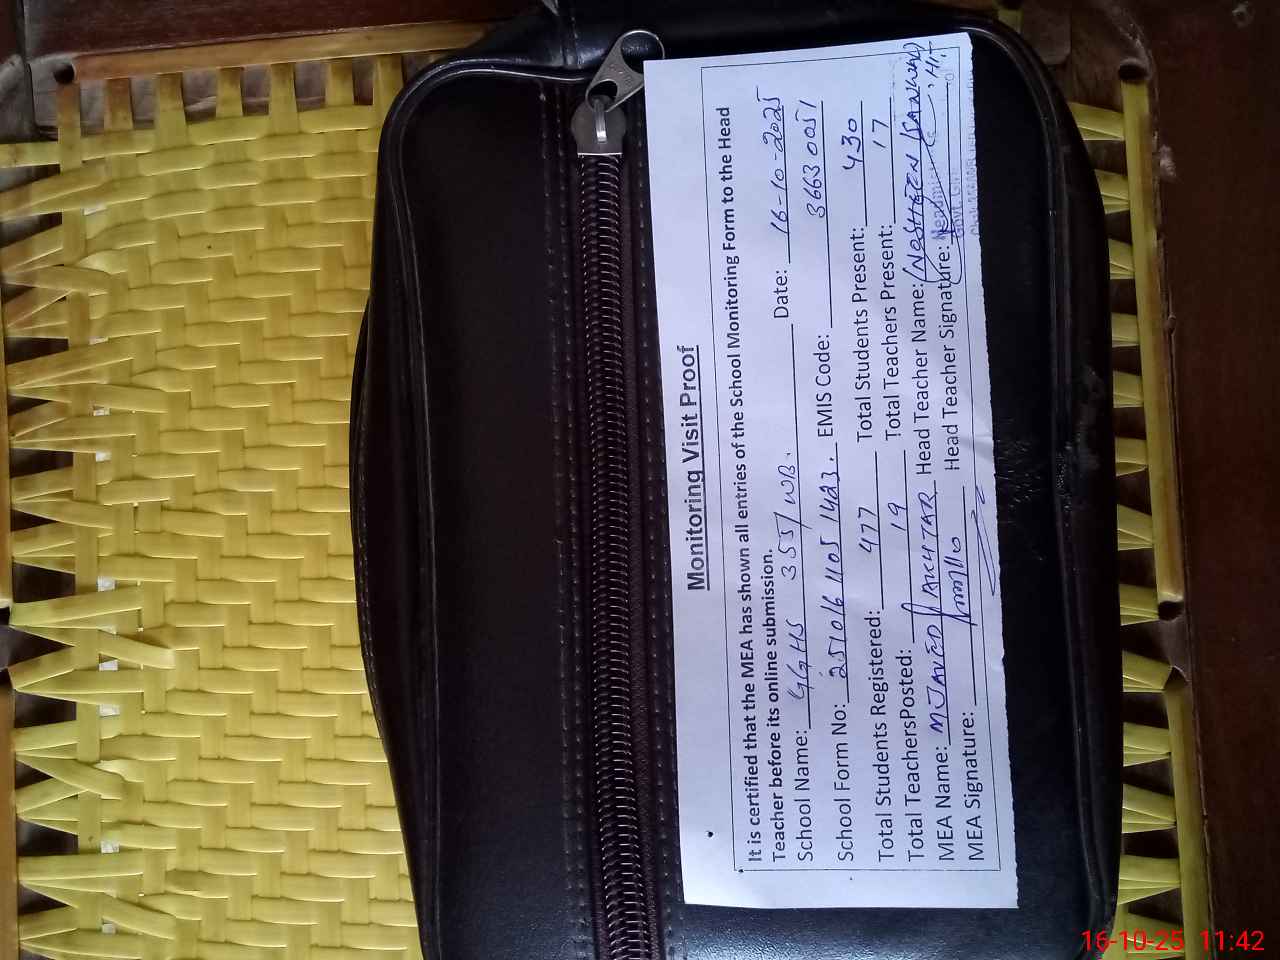 Monitoring Visit Proof
It is certified that the MEA has shown all entries of the School Monitoring Form to the Head
Teacher before its online submission.
School Name: GGHS 355/WB. Date: 16-10-2025
School Form No: 25101611051423. EMIS Code: 36630051
Total Students Registered: 477 Total Students Present: 430
Total TeachersPosted: 19 Total Teachers Present: 17
MEA Name: M JAVED AKHTAR Head Teacher Name: NOSHEEN
MEA Signature: Head Teacher Signature:
16-10-25 11:42